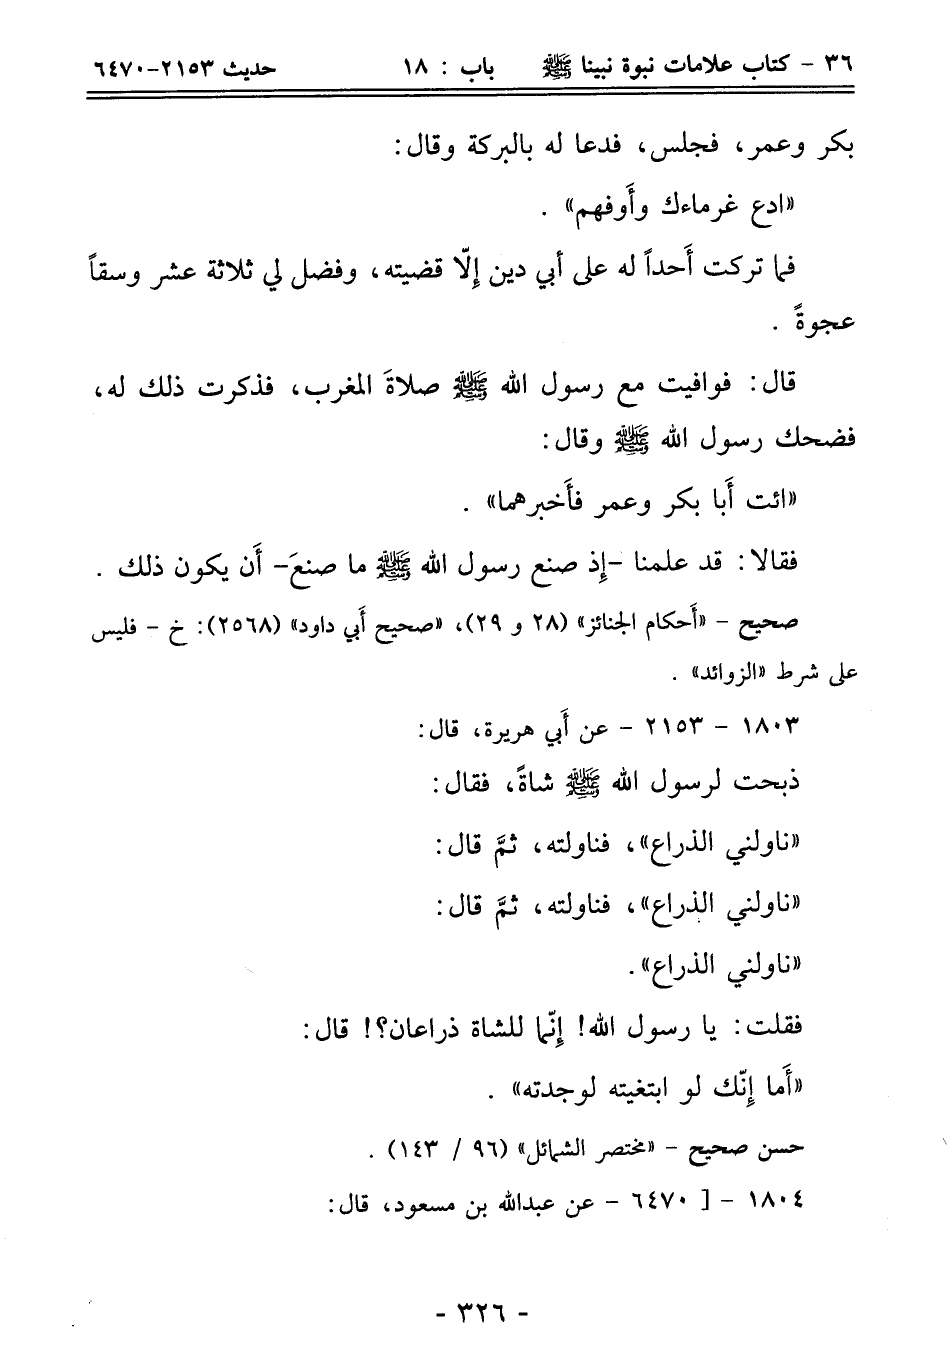 ٣٦ - كتاب علامات نبوة نبينا ﷺ باب : ١٨ حديث ٢١٥٣-٦٤٧٠
بكر وعمر، فجلس، فدعا له بالبركة وقال:
«ادع غرماءك وأَوفهم» .
فما تركت أَحداً له على أبي دين إِلّا قضيته، وفضل لي ثلاثة عشر وسقاً
عجوةً .
قال: فوافيت مع رسول الله ﷺ صلاةَ المغرب، فذكرت ذلك له،
فضحك رسول الله ﷺ وقال:
«ائت أَبا بكر وعمر فأَخبرهما» .
فقالا: قد علمنا -إِذ صنع رسول الله ﷺ ما صنعَ- أَن يكون ذلك .
صحيح - «أَحكام الجنائز» (٢٨ و ٢٩)، «صحيح أَبي داود» (٢٥٦٨): خ - فليس
على شرط «الزوائد» .
١٨٠٣ - ٢١٥٣ - عن أَبي هريرة، قال:
ذبحت لرسول الله ﷺ شاةً، فقال:
«ناولني الذراع»، فناولته، ثمَّ قال:
«ناولني الذراع»، فناولته، ثمَّ قال:
«ناولني الذراع».
فقلت: يا رسول الله! إِنّما للشاة ذراعان؟! قال:
«أَما إِنّك لو ابتغيته لوجدته» .
حسن صحيح - «مختصر الشمائل» (٩٦ / ١٤٣) .
١٨٠٤ - [ ٦٤٧٠ - عن عبدالله بن مسعود، قال:
- ٣٢٦ -